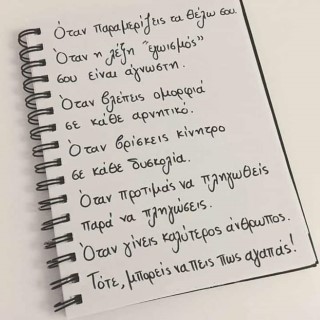 Όταν παραμερίζεις τα θέλω σου.
Όταν η λέξη "εγωισμός"
σου είναι άγνωστη.
Όταν βλέπεις ομορφιά
σε κάθε αρνητικό.
Όταν βρίσκεις κίνητρο
σε κάθε δυσκολία.
Όταν προτιμάς να πληγωθείς
παρά να πληγώσεις.
Όταν γίνεις καλύτερος άνθρωπος.
Τότε, μπορείς να πεις πως αγαπάς!